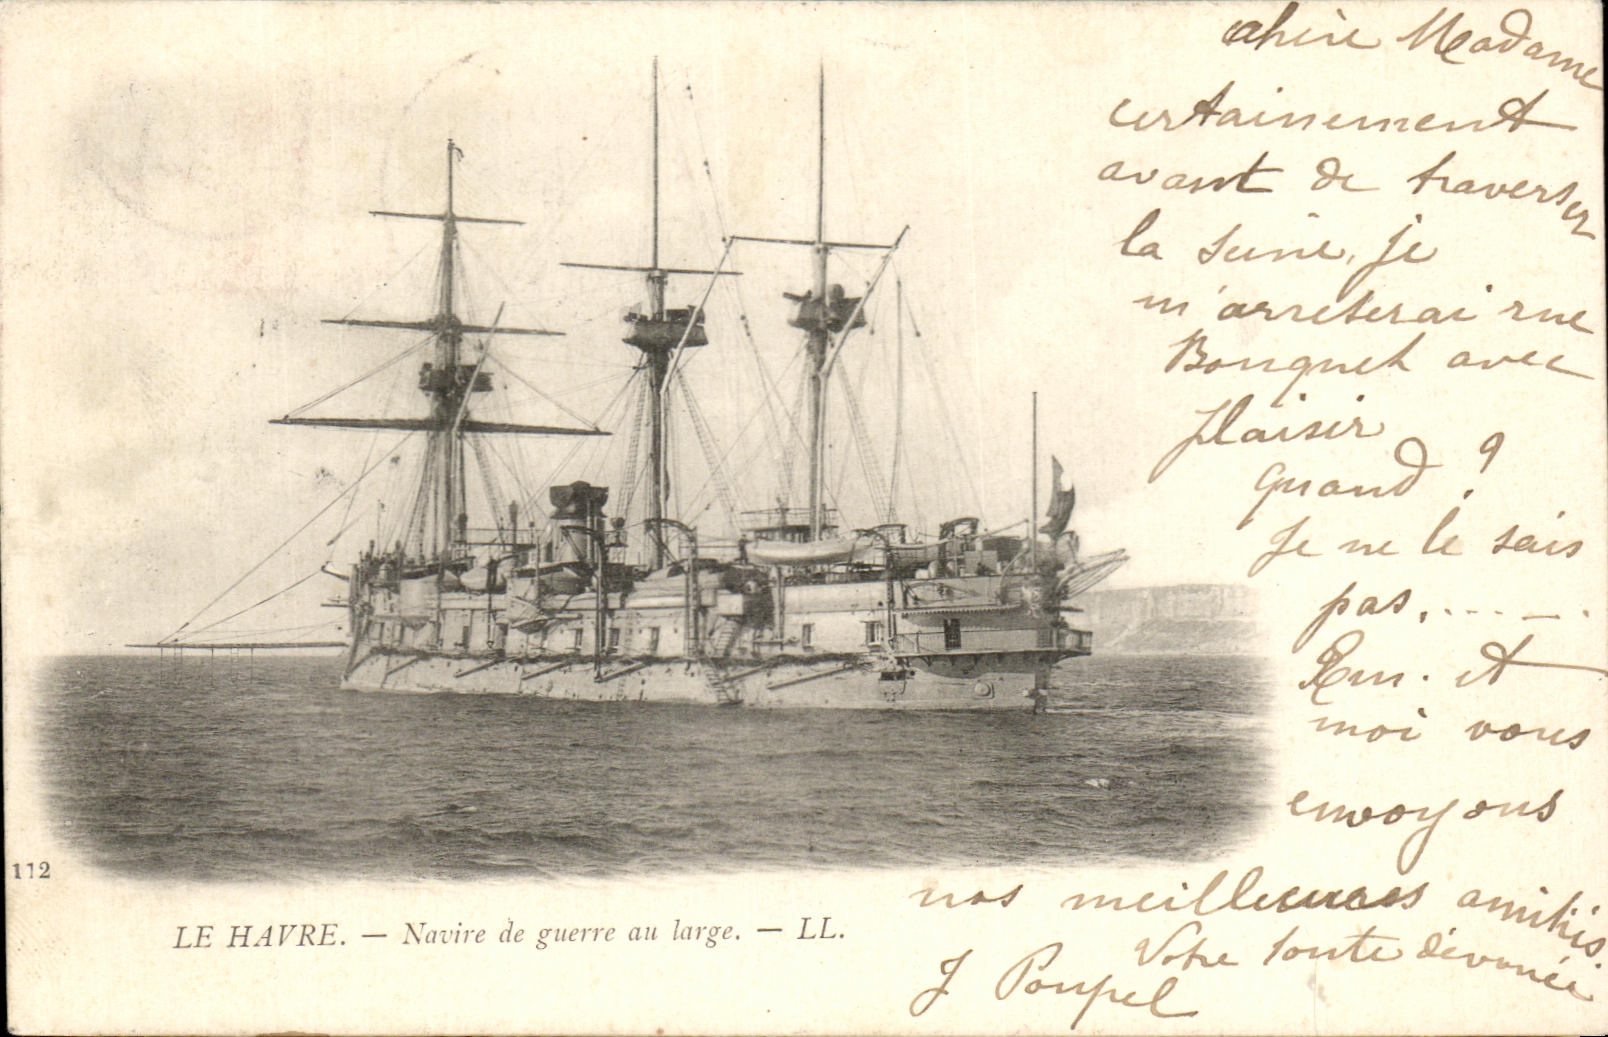 chère Madame
certainement
avant de traverser
la Seine, je
m'arreterai rue
Bouquet avec
plaisir
Quand ?
Je ne le sais
pas, .... — .
Em. et
moi vous
envoyons
nos meilleures amitiés.
Votre toute dévouée
J Poupel
112
LE HAVRE. — Navire de guerre au large. — LL.